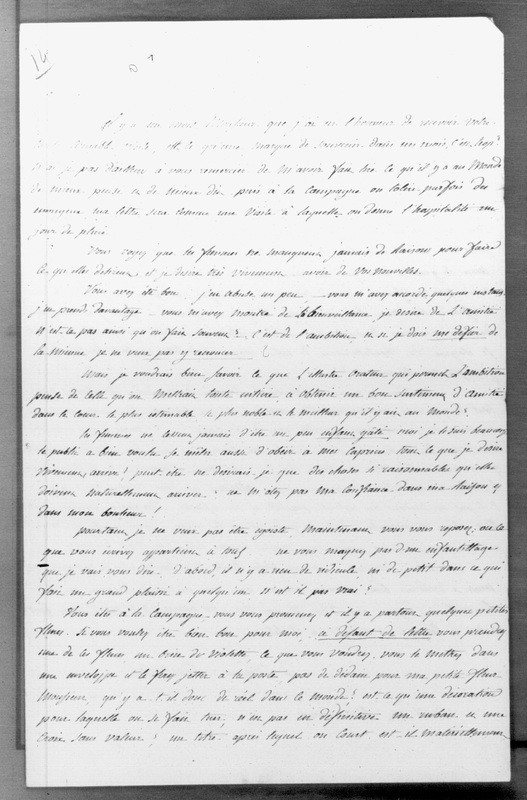 14
Il y a un mois Monsieur que j'ai eu l'honneur de recevoir votre
visite, est ce qu'une marque de souvenir dans un mois, c'est trop?
n'ai je pas d'ailleurs à vous remercier de m'avoir fait lire ce qu'il y a au Monde
de mieux pensé et de mieux dit, puis à la campagne on tolère parfois des
ma lettre sera comme une visite à laquelle on donne l'hospitalité un
jour de pluie.
Vous voyez que les femmes ne manquent jamais de raisons pour faire
ce qu'elles desirent, et je desire très vivement avoir de vos nouvelles.
Vous avez été bon j'en abuse un peu vous m'avez accordé quelques instans
j'en prends davantage vous m'avez montré de la bienveillance je desire de l'amitié
n'est ce pas ainsi qu'on fait souvent? C'est de l'ambition et si je dois me défier de
la mienne je ne veux pas y renoncer
Mais je voudrais bien savoir ce que l'illustre orateur qui l'ambition
pense de celle qu'on mettrait toute entière à obtenir un bon sentiment d'amitié
dans le cœur le plus estimable le plus noble et le meilleur qu'il y ait au monde?
les femmes ne cessent jamais d'être un peu enfant gâté moi je le suis beaucoup
le public a bien voulu se mêler aussi d'obéir à mes caprices tout ce que je desire
vivement arrive! peut être ne desirais je que des choses si raisonnables qu'elles
doivent naturellement arriver? ne m'otez pas ma confiance dans ma raison et
dans mon bonheur!
pourtant je ne veux pas être egoiste, maintenant vous vous reposez, ou ce
que vous écrivez appartient à tous ne vous moquez pas d'un enfantillage
que je vais vous dire. d'abord, il n'y a rien de ridicule, ni de petit dans ce qui
fait un grand plaisir à quelqu'un n'est il pas vrai?
Vous êtes à la campagne vous vous promenez et il y a partout quelques petites
fleurs. Si vous voulez être bon bon pour moi, à défaut de lettre vous prendrez
une de ces fleurs un brin de violette, ce que vous voudrez vous le mettrez dans
une enveloppe et le ferez jetter à la poste, pas de dédain pour ma petite fleur
Monsieur, qu'y a t'il donc de réel dans le monde? est ce qu'une décoration
pour laquelle on se fait tuer, n'est pas en définitive un ruban et une
croix sans valeur? un titre après lequel on court est il matériellement